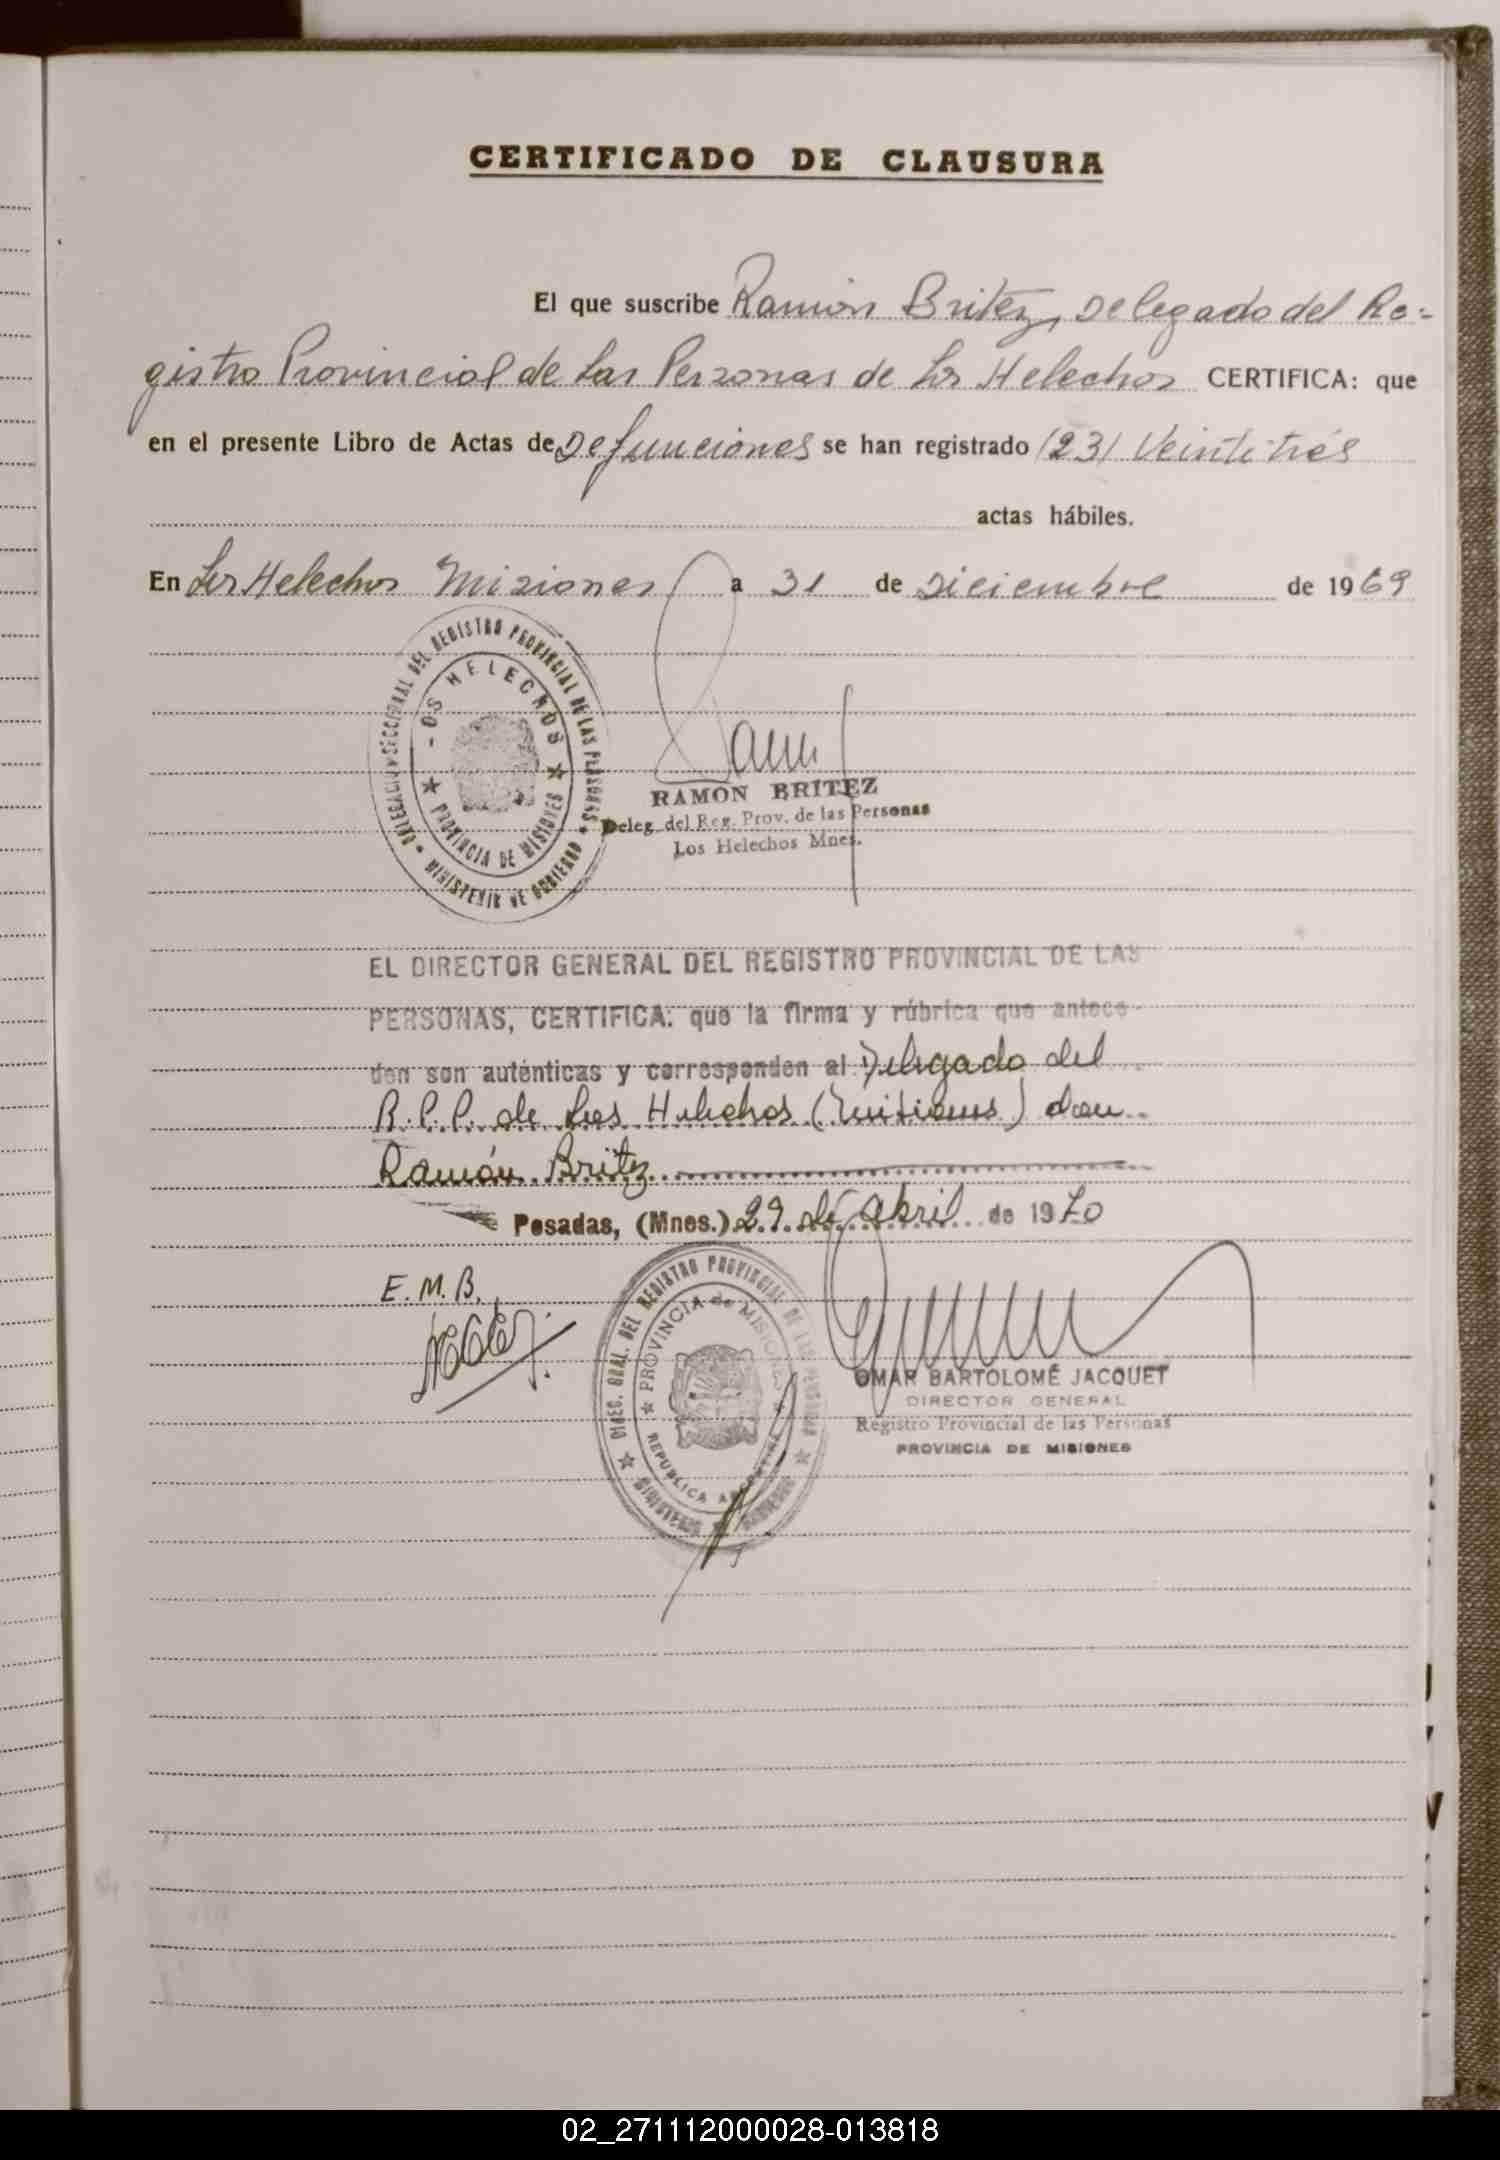 CERTIFICADO DE CLAUSURA
El que suscribe Ramón Britez, Delegado del Re-
gistro Provincial de Las Personas de Los Helechos CERTIFICA: que
en el presente Libro de Actas de Defunciones se han registrado (23) Veintitrés
actas hábiles.
En Los Helechos Misiones a 31 de Diciembre de 1969
DELEGACION SECCIONAL DEL REGISTRO PROVINCIAL DE LAS PERSONAS
LOS HELECHOS
PROVINCIA DE MISIONES
MINISTERIO DE GOBIERNO
RAMON BRITEZ
Deleg. del Reg. Prov. de las Personas
Los Helechos Mnes.
EL DIRECTOR GENERAL DEL REGISTRO PROVINCIAL DE LAS
PERSONAS, CERTIFICA: que la firma y rúbrica que antece-
den son auténticas y corresponden al Delegado del
R.P.P. de Los Helechos (Misiones) don
Ramón Britez
Posadas, (Mnes.) 29 de abril de 1970
E.M.B.
DIREC. GRAL. DEL REGISTRO PROVINCIAL DE LAS PERSONAS
PROVINCIA de MISIONES
REPUBLICA ARGENTINA
MINISTERIO DE GOBIERNO
OMAR BARTOLOMÉ JACQUET
DIRECTOR GENERAL
Registro Provincial de las Personas
PROVINCIA DE MISIONES
02_271112000028-013818